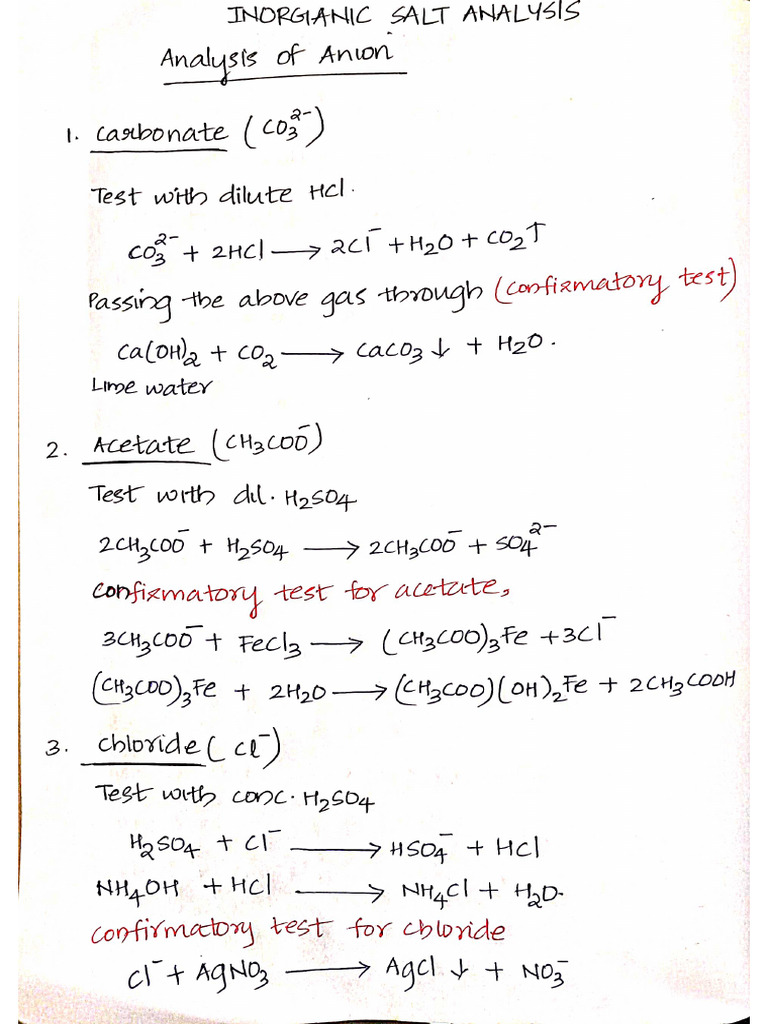 INORGIANIC SALT ANALYSIS
Analysis of Anion
1. carbonate (CO₃²⁻)
Test with dilute HCl.
CO₃²⁻ + 2HCl ⟶ 2Cl⁻ + H₂O + CO₂↑
Passing the above gas through (confirmatory test)
Ca(OH)₂ + CO₂ ⟶ CaCO₃↓ + H₂O.
Lime water
2. Acetate (CH₃COO⁻)
Test with dil. H₂SO₄
2CH₃COO⁻ + H₂SO₄ ⟶ 2CH₃COO⁻ + SO₄²⁻
confirmatory test for acetate,
3CH₃COO⁻ + FeCl₃ ⟶ (CH₃COO)₃Fe + 3Cl⁻
(CH₃COO)₃Fe + 2H₂O ⟶ (CH₃COO)(OH)₂Fe + 2CH₃COOH
3. chloride (Cl⁻)
Test with conc. H₂SO₄
H₂SO₄ + Cl⁻ ⟶ HSO₄⁻ + HCl
NH₄OH + HCl ⟶ NH₄Cl + H₂O.
confirmatory test for chloride
Cl⁻ + AgNO₃ ⟶ AgCl↓ + NO₃⁻